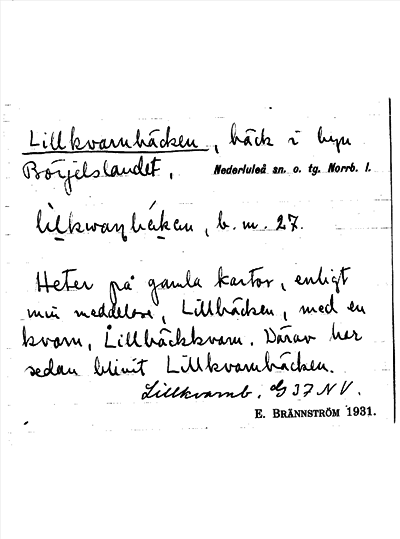 Lillkvarnbäcken, bäck i byn
Börjelslandet, Nederluleå sn. o. tg. Norrb. l.
b. m. 27.
Heter på gamla kartor, enligt
min meddelare, Lillbäcken, med en
kvarn, Lillbäckkvarn. Därav har
sedan blivit Lillkvarnbäcken.
Lillkvarnb. 37 NV.
E. BRÄNNSTRÖM 1931.